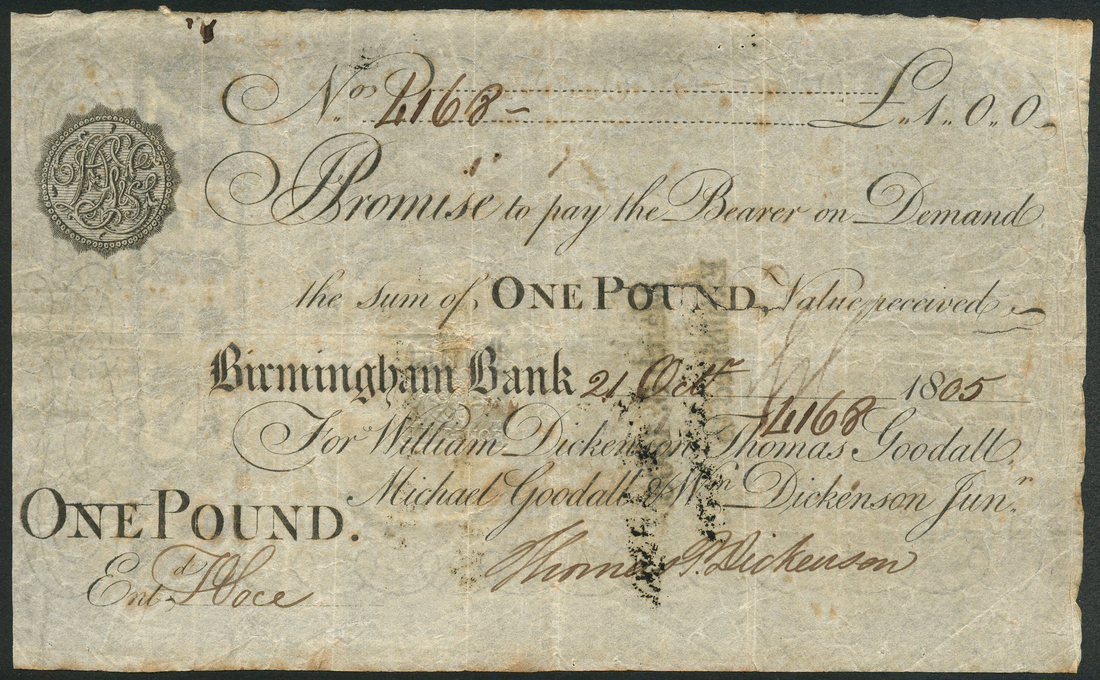 Nos 4168 £1.0.0
I Promise to pay the Bearer on Demand
the sum of ONE POUND Value received
Birmingham Bank 21 Octr 1805
4168
For William Dickenson, Thomas Goodall,
Michael Goodall & Wm Dickenson Junr.
ONE POUND.
Thomas P. Dickenson
Entd